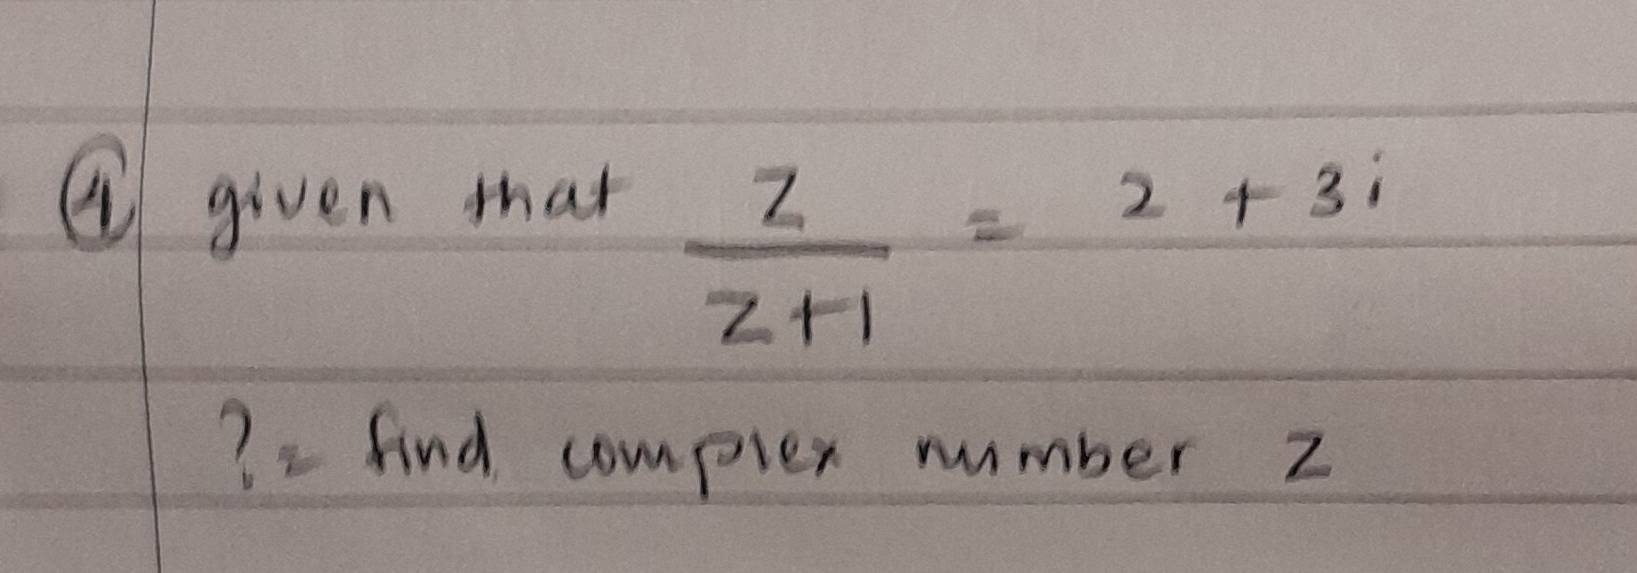 ④ given that z/(z+1) = 2 + 3i
? = find complex number z